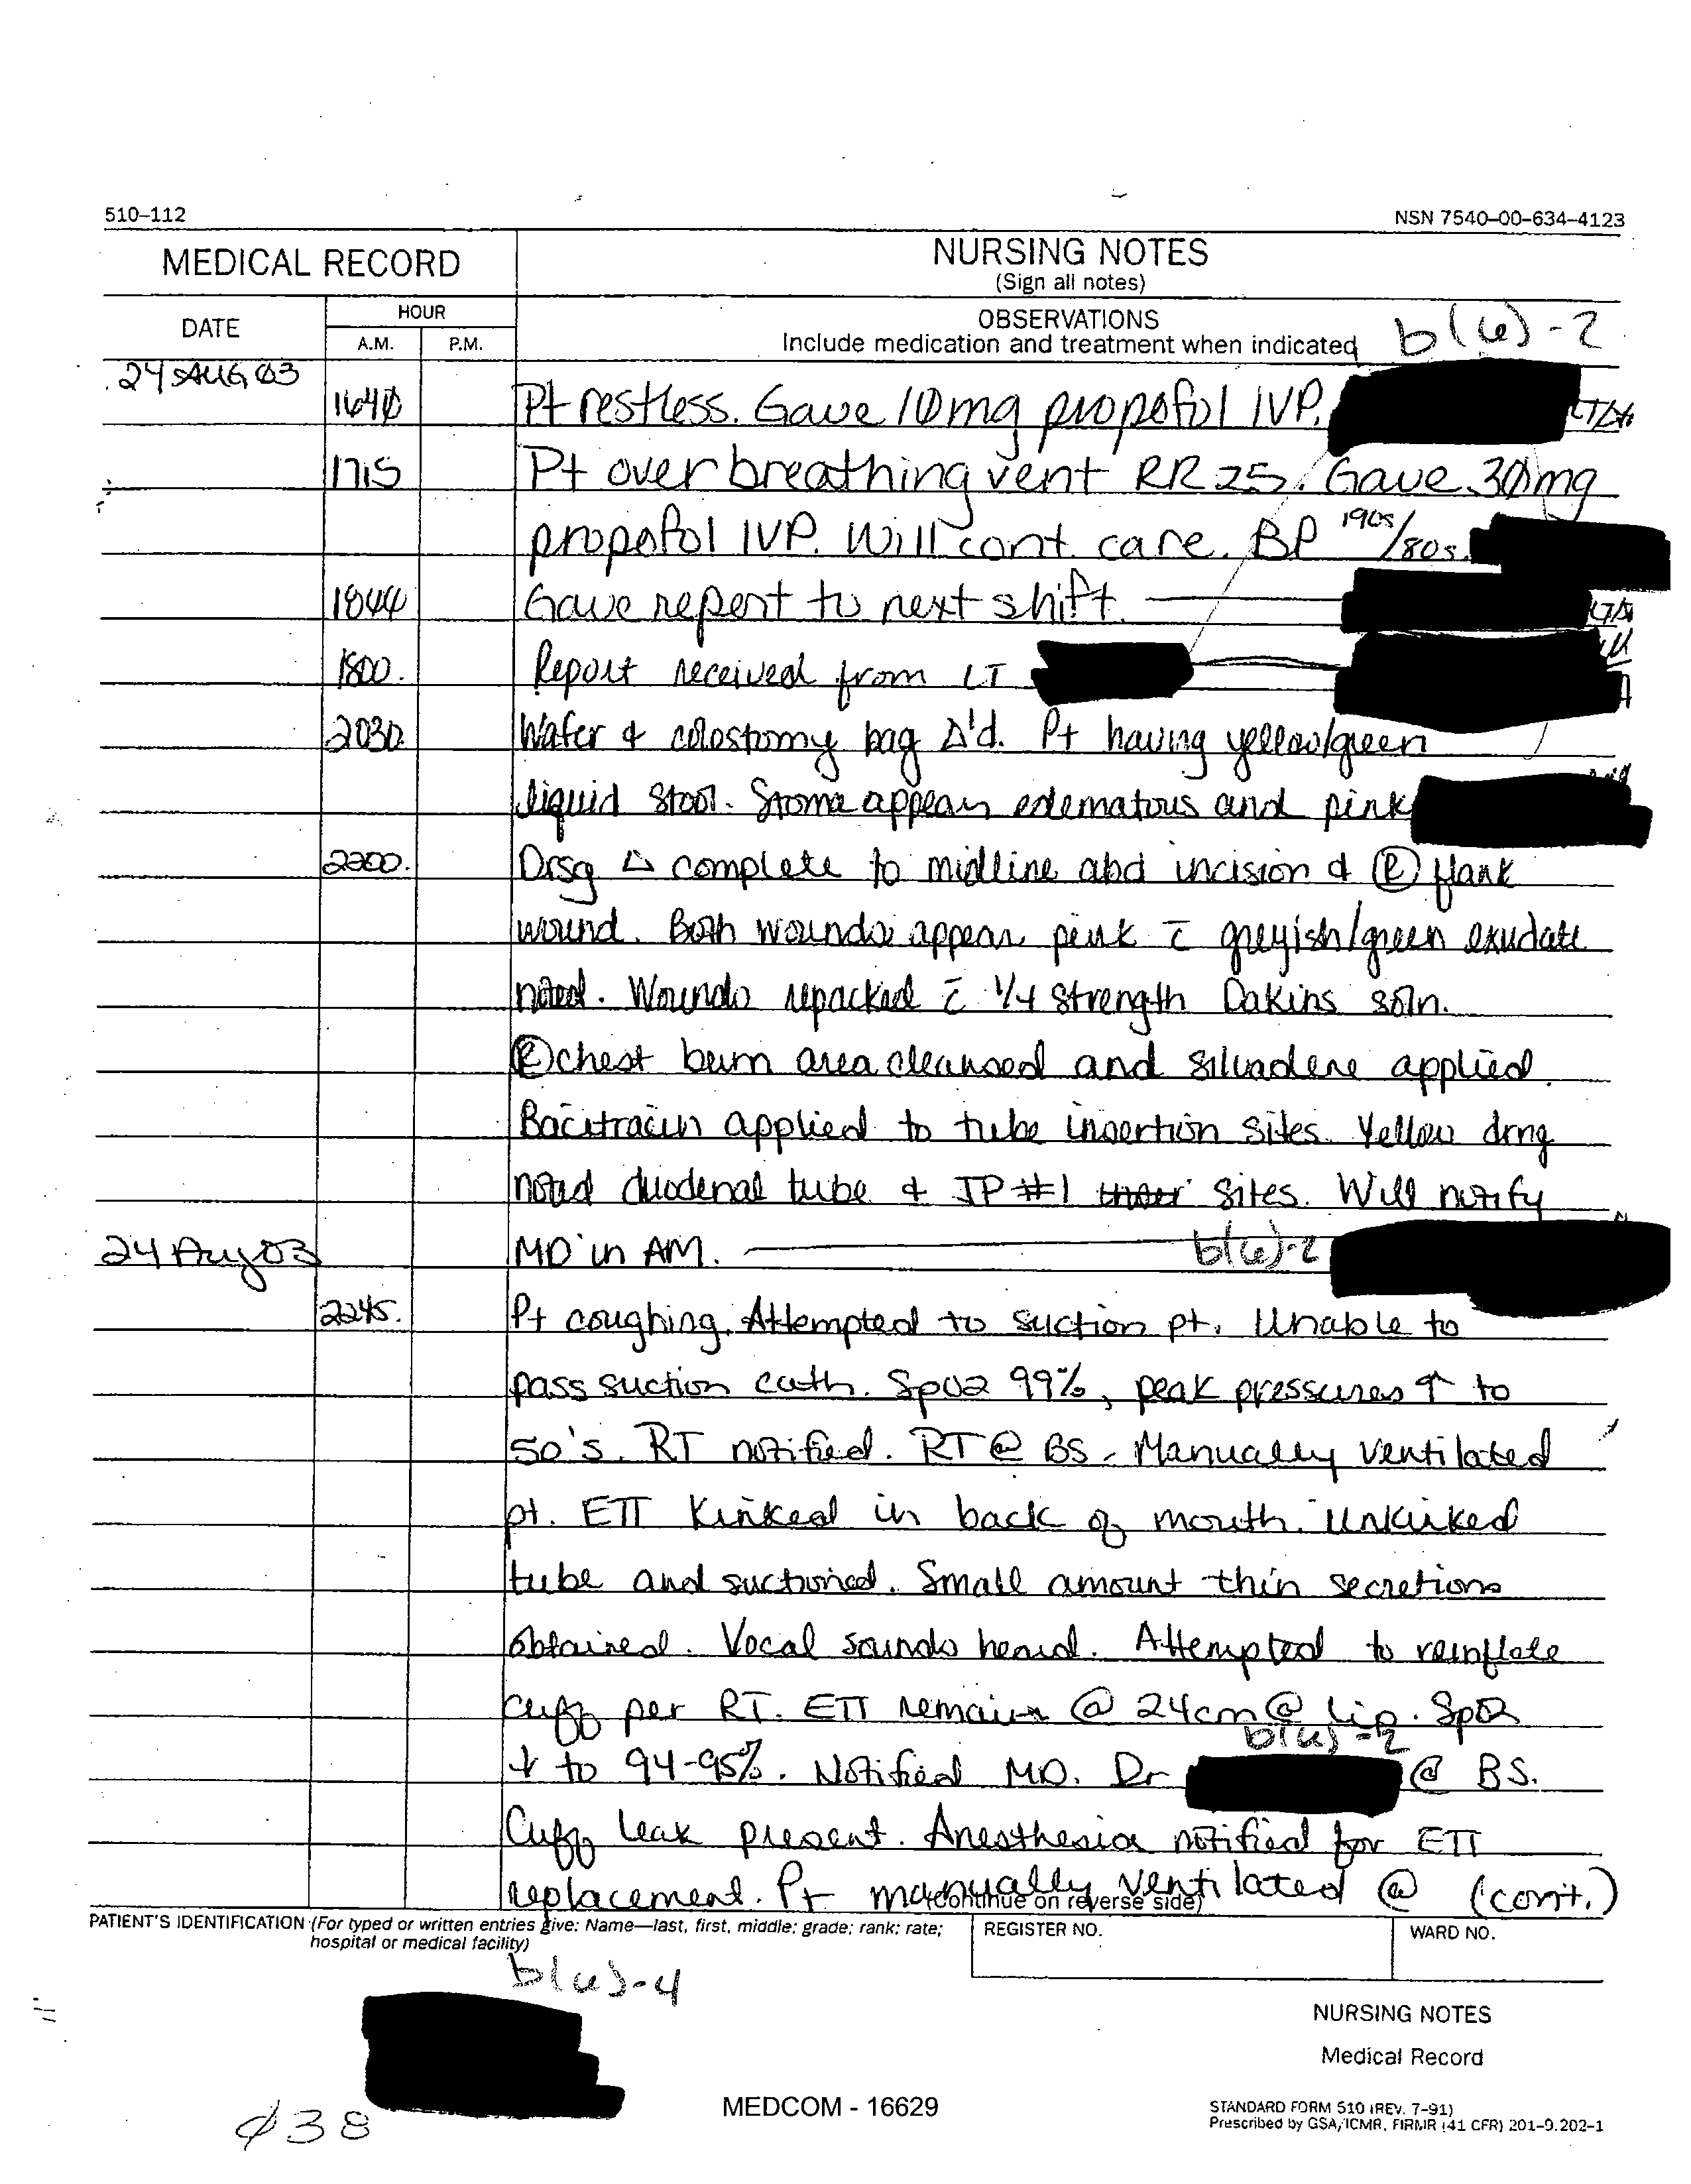 510–112
NSN 7540–00–634–4123
MEDICAL RECORD
NURSING NOTES
(Sign all notes)
DATE
HOUR
A.M.
P.M.
OBSERVATIONS
Include medication and treatment when indicated
b(6)-2
24 AUG 03
1640 Pt restless. Gave 10mg propofol IVP.
1715 Pt over breathing vent RR 25. Gave 30mg
propofol IVP. Will cont. care. BP 190s/80s.
1844 Gave report to next shift.
1800. Report received from LT
2030 Wafer & colostomy bag Δ'd. Pt having yellow/green
liquid stool. Stoma appears edematous and pink
2200. Drsg Δ complete to midline abd incision & Ⓡ flank
wound. Both wounds appear pink c̄ greyish/green exudate
noted. Wounds repacked c̄ 1/4 strength Dakins soln.
Ⓡ chest burn area cleansed and silvadene applied.
Bacitracin applied to tube insertion sites. Yellow drng
noted duodenal tube & JP #1 sites. Will notify
24 Aug 03 MD in AM. b(6)-2
2245. Pt coughing. Attempted to suction pt. Unable to
pass suction cath. SpO2 99%, peak pressures ↑ to
50's. RT notified. RT @ BS. Manually ventilated
pt. ETT kinked in back of mouth. Unkinked
tube and suctioned. Small amount thin secretions
obtained. Vocal sounds heard. Attempted to reinflate
cuff per RT. ETT remains @ 24cm @ lip. SpO2
b(6)-2
↓ to 94-95%. Notified MD. Dr @ BS.
Cuff leak present. Anesthesia notified for ETT
replacement. Pt manually ventilated @ (cont.)
(Continue on reverse side)
PATIENT'S IDENTIFICATION (For typed or written entries give: Name—last, first, middle; grade; rank; rate;
hospital or medical facility)
REGISTER NO.
WARD NO.
b(6)-4
NURSING NOTES
Medical Record
MEDCOM - 16629
STANDARD FORM 510 (REV. 7-91)
Prescribed by GSA/ICMR, FIRMR (41 CFR) 201-9.202-1
038